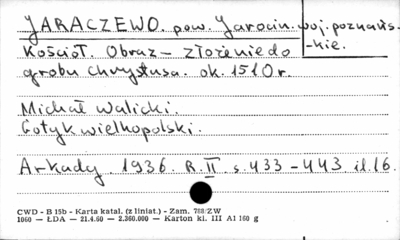 JARACZEWO. pow. Jarocin. woj. poznańs-
-kie.
Kościół. Obraz – złożenie do
grobu Chrystusa. ok. 1510 r.
Michał Walicki.
Gotyk wielkopolski.
Arkady. 1936. R. II s. 433 – 443. il. 16.
CWD - B 15b - Karta katal. (z liniat.) - Zam. 788/ZW
1060 — ŁDA — 21.4.60 — 2.360.000 — Karton kl. III A1 160 g